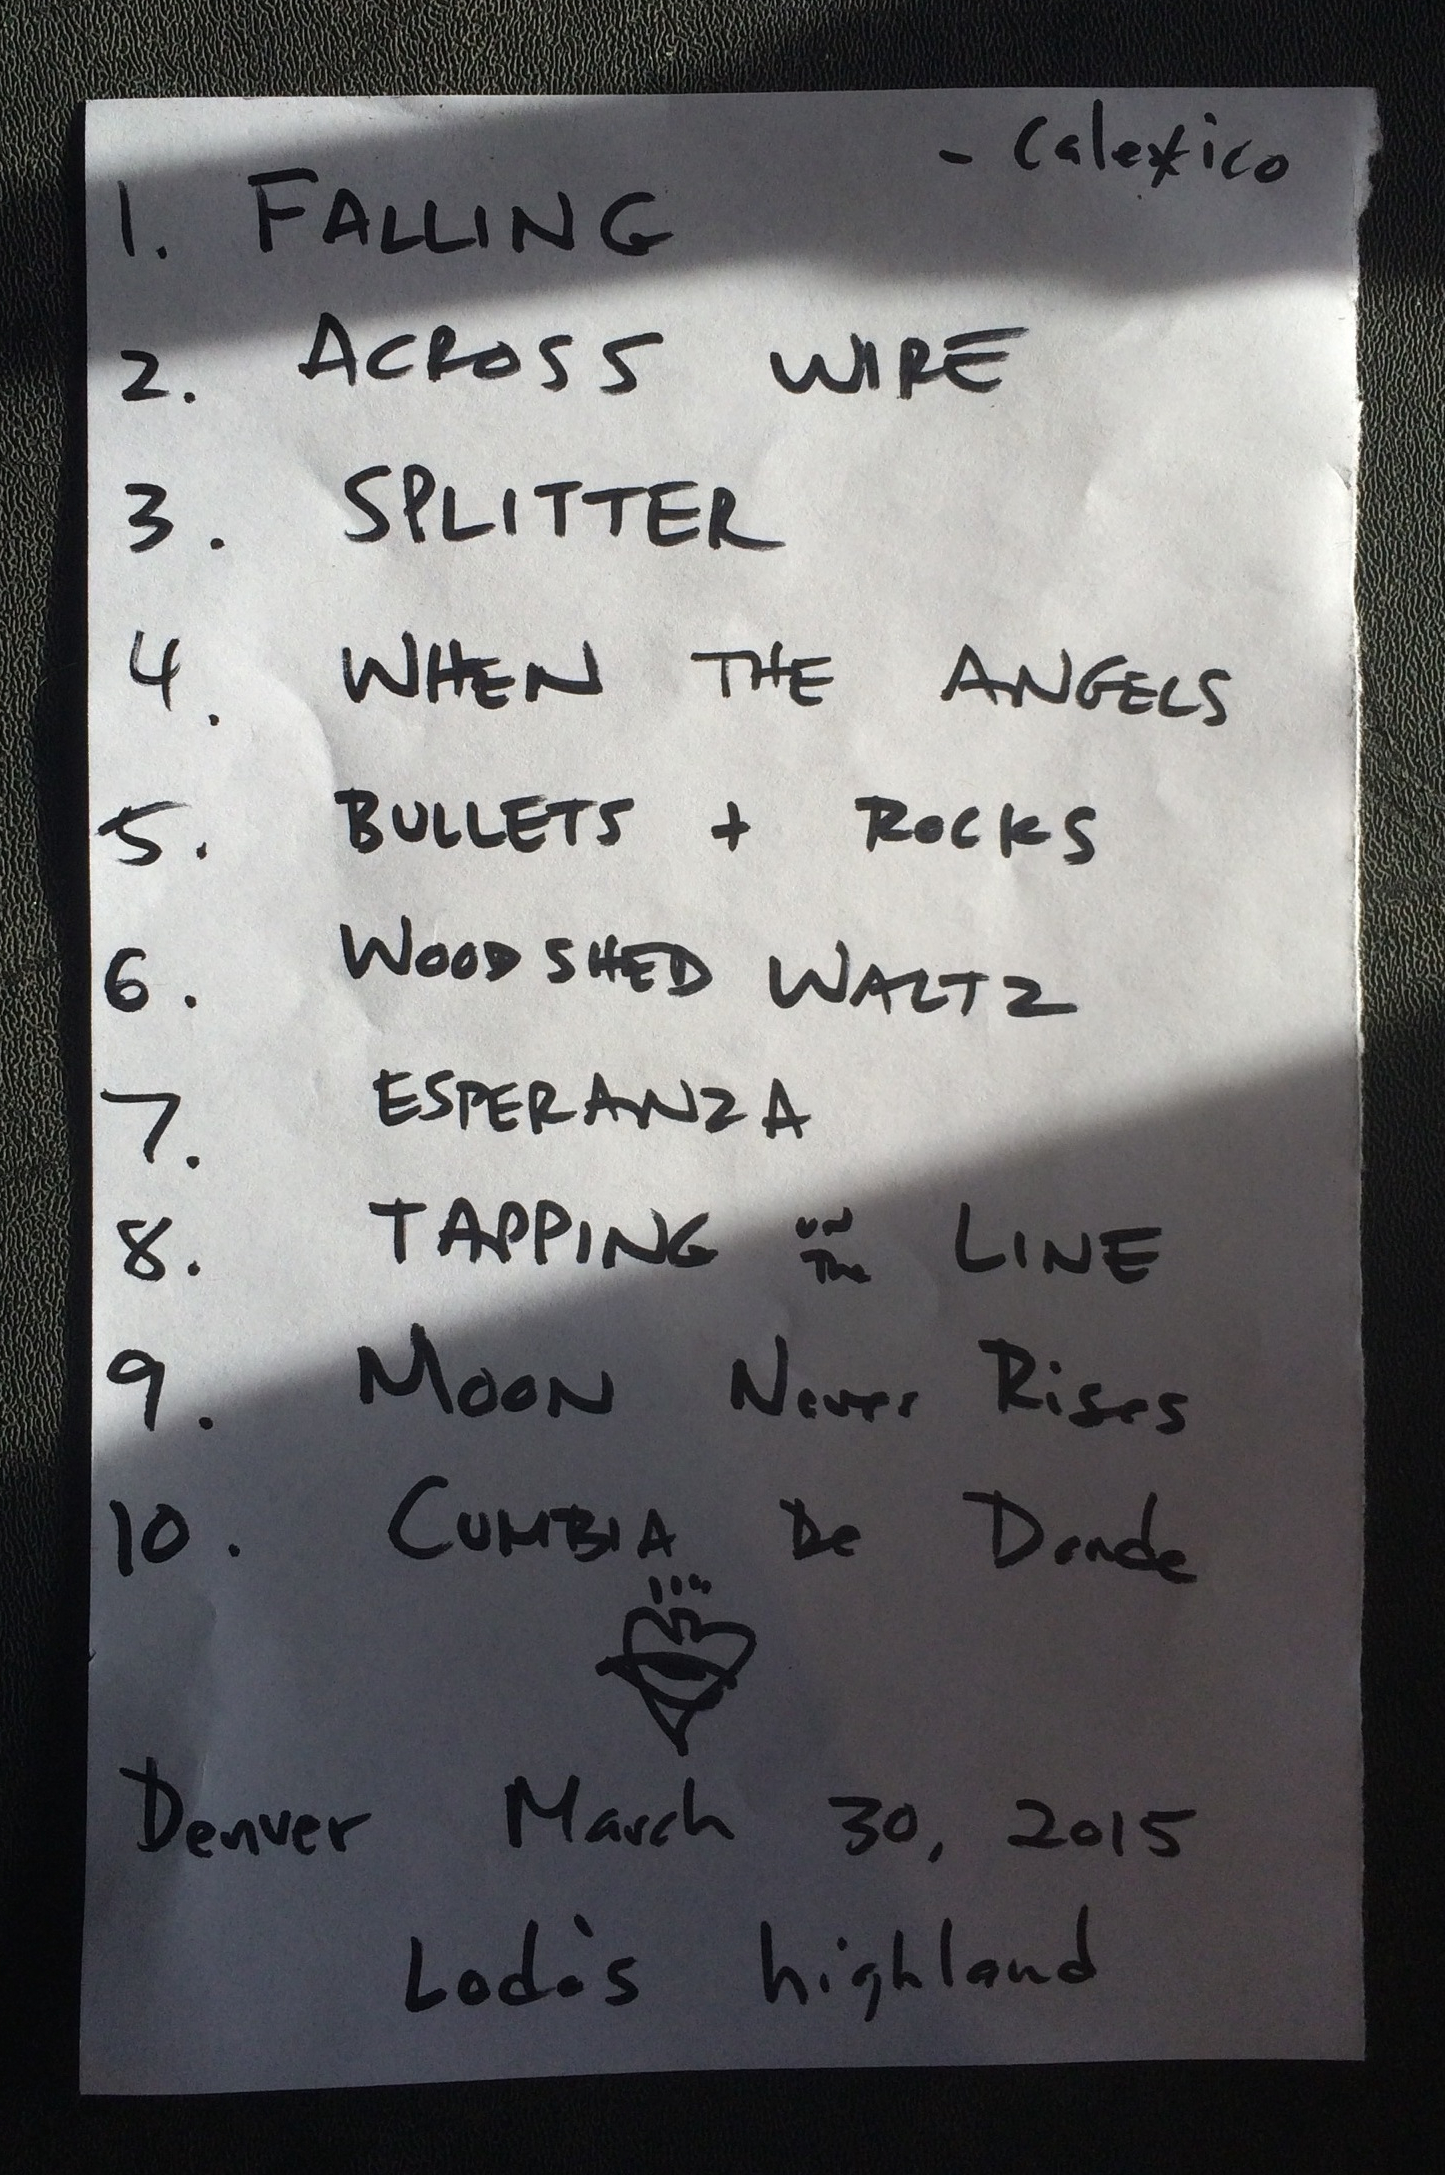 - Calexico
1. FALLING
2. ACROSS WIRE
3. SPLITTER
4. WHEN THE ANGELS
5. BULLETS + ROCKS
6. WOODSHED WALTZ
7. ESPERANZA
8. TAPPING ON The LINE
9. MOON Never Rises
10. CUMBIA De Donde
Denver March 30, 2015
Lodo's highland